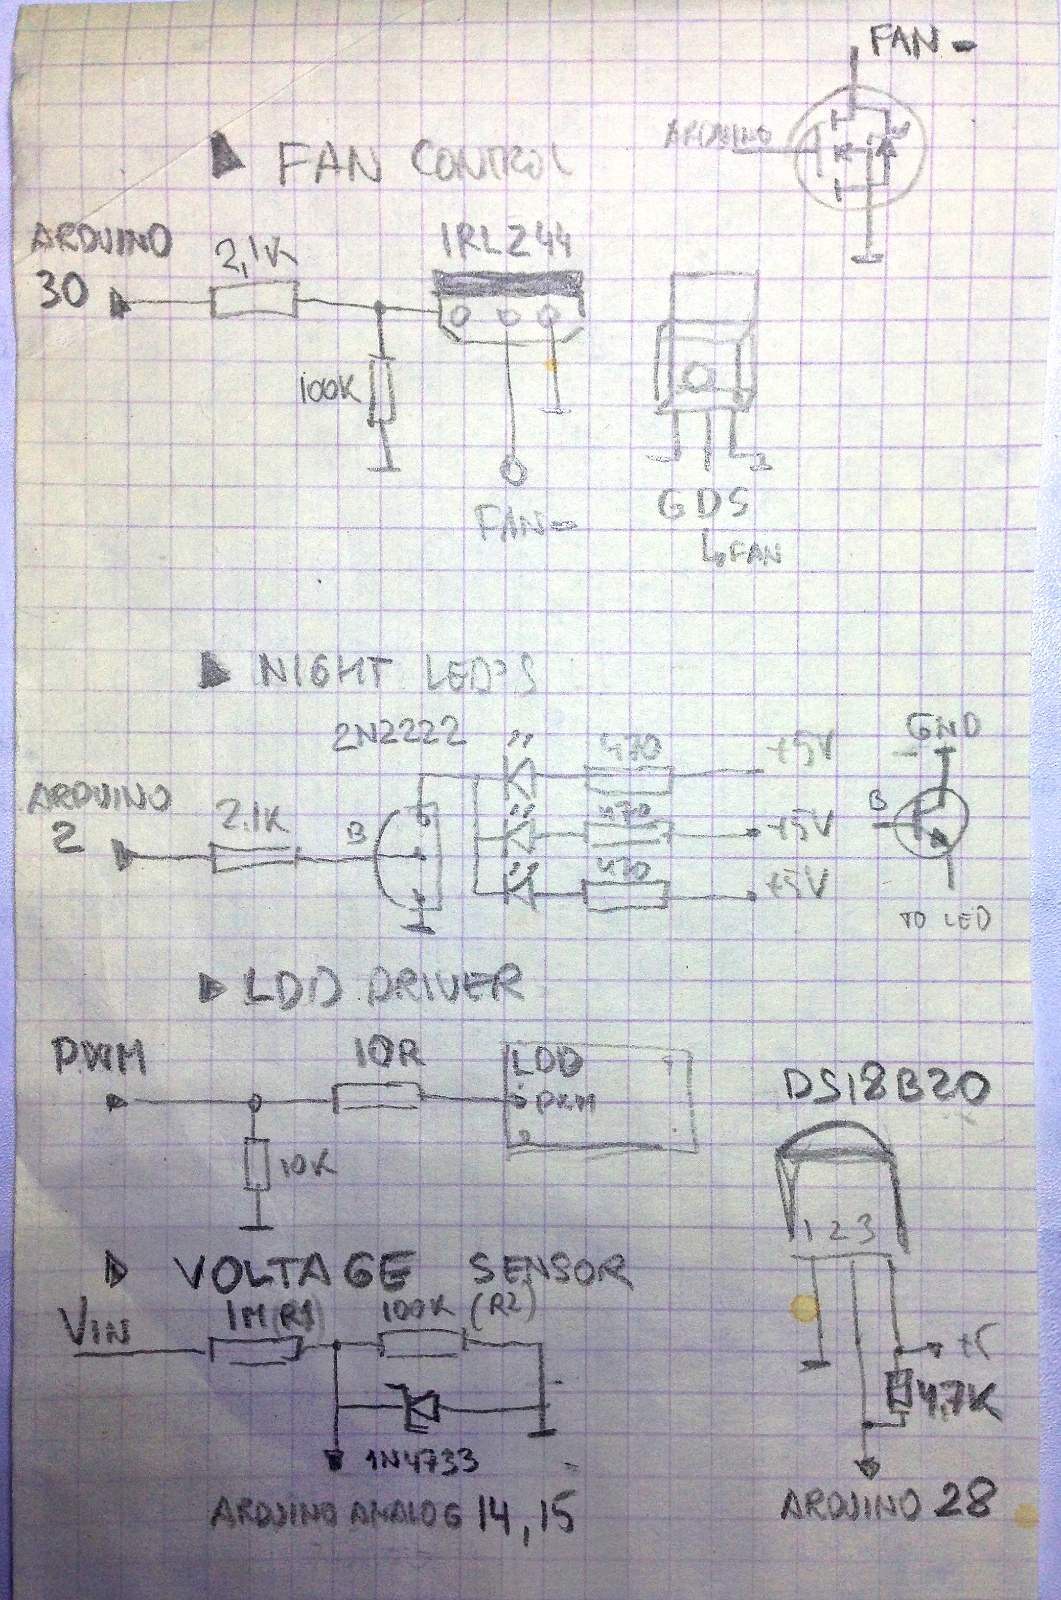 FAN -
ARDUINO
FAN CONTROL
ARDUINO
30
2,1K
IRLZ44
100K
FAN-
G D S
FAN
NIGHT LED'S
2N2222
ARDUINO
2
2.1K
B
470
+5V
470
+5V
470
+5V
GND
B
TO LED
LDD DRIVER
PWM
10R
LDD
PWM
10K
DS18B20
1 2 3
+5
4,7K
ARDUINO 28
VOLTAGE SENSOR
VIN
1M(R1)
100K (R2)
1N4733
ARDUINO ANALOG 14, 15